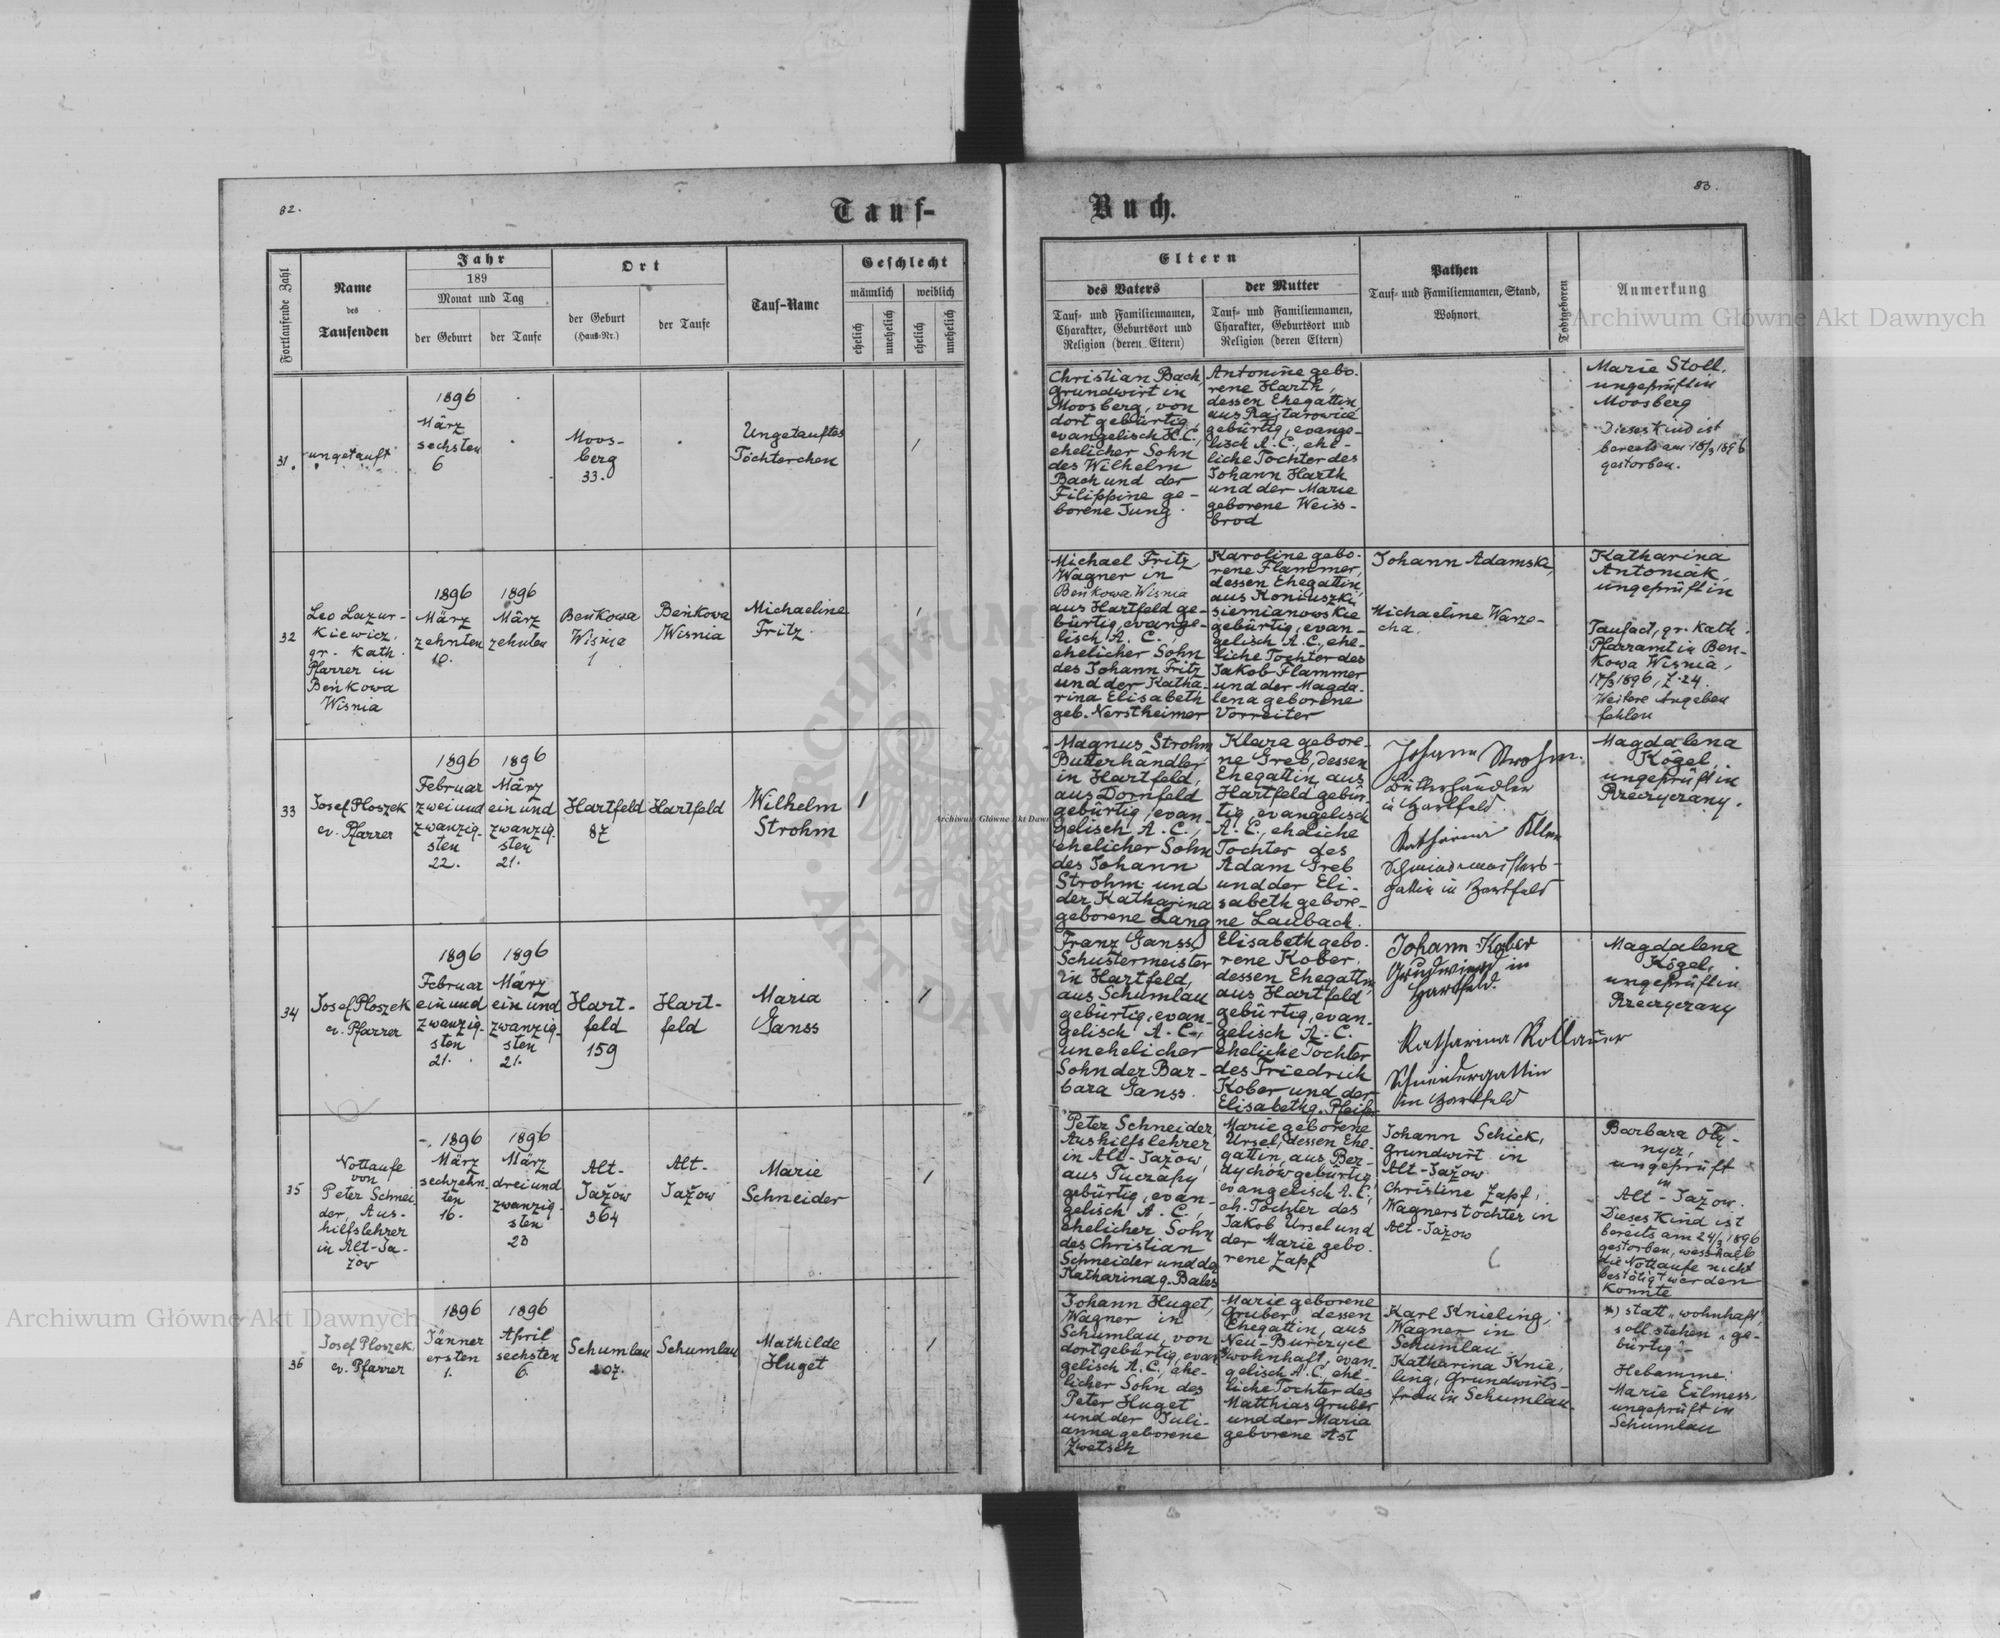 82.
Tauf-
Buch.
83.
Fortlaufende Zahl
Name
des
Taufenden
Jahr
189
Monat und Tag
der Geburt
der Taufe
Ort
der Geburt
(Haus-Nr.)
der Taufe
Tauf-Name
Geschlecht
männlich
weiblich
ehelich
unehelich
ehelich
unehelich
Eltern
des Vaters
Tauf- und Familiennamen,
Charakter, Geburtsort und
Religion (deren Eltern)
der Mutter
Tauf- und Familiennamen,
Charakter, Geburtsort und
Religion (deren Eltern)
Pathen
Tauf- und Familiennamen, Stand,
Wohnort
Todtgeboren
Anmerkung
31.
ungetauft
1896
März
sechsten
6
Moos-
berg
33.
Ungetauftes
Töchterchen
1
Christian Bach,
Grundwirt in
Moosberg, von
dort gebürtig,
evangelisch H.C.,
ehelicher Sohn
des Wilhelm
Bach und der
Filippine ge-
borene Jung.
Antonine gebo-
rene Harth,
dessen Ehegattin
aus Rajtarowice
gebürtig, evange-
lisch A.C., ehe-
liche Tochter des
Johann Harth
und der Marie
geborene Weiss-
brod
Marie Stoll,
ungeprüft in
Moosberg
Dieses Kind ist
bereits am 18/3 1896
gestorben.
32
Leo Lazur-
kiewicz,
gr. kath.
Pfarrer in
Beńkowa
Wisnia
1896
März
zehnten
10.
1896
März
zehnten
Beńkowa
Wisnia
1
Beńkowa
Wisnia
Michaeline
Fritz
1
Michael Fritz,
Wagner in
Beńkowa Wisnia
aus Hartfeld ge-
bürtig, evange-
lisch A.C.,
ehelicher Sohn
des Johann Fritz
und der Katha-
rina Elisabeth
geb. Nerstheimer
Karoline gebo-
rene Flammer,
dessen Ehegattin,
aus Koniuszki
siemianowskie
gebürtig, evan-
gelisch A.C., ehe-
liche Tochter des
Jakob Flammer
und der Magda-
lena geborene
Vorreiter
Johann Adamski,
Michaeline Warze-
cha.
Katharina
Antoniak,
ungeprüft in
Taufact, gr. Kath.
Pfarramt in Ben-
kowa Wisnia,
1896, Z. 24.
Weitere Angaben
fehlen
33
Josef Ploszek
ev. Pfarrer
1896
Februar
zwei und
zwanzig-
sten
22.
1896
März
ein und
zwanzig-
sten
21.
Hartfeld
87
Hartfeld
Wilhelm
Strohm
1
Magnus Strohm
Butterhändler
in Hartfeld,
aus Dornfeld
gebürtig, evan-
gelisch A.C.,
ehelicher Sohn
des Johann
Strohm und
der Katharina
geborene Lang
Klara gebore-
ne Greb, dessen
Ehegattin, aus
Hartfeld gebür-
tig, evangelisch
A.C., eheliche
Tochter des
Adam Greb
und der Eli-
sabeth gebore-
ne Laubach.
Johann Strohm.
Butterhändler
in Hartfeld.
Katharina
Schmiedemeisters-
gattin in Hartfeld
Magdalena
Kögel,
ungeprüft in
Rzeczyczany.
34
Josef Ploszek
ev. Pfarrer
1896
Februar
ein und
zwanzig-
sten
21.
1896
März
ein und
zwanzig-
sten
21.
Hart-
feld
159
Hart-
feld
Maria
Ganss
1
Franz Ganss
Schustermeister
in Hartfeld,
aus Schumlau
gebürtig, evan-
gelisch A.C.,
unehelicher
Sohn der Bar-
bara Ganss.
Elisabeth gebo-
rene Kober,
dessen Ehegattin,
aus Hartfeld
gebürtig, evan-
gelisch A.C.
eheliche Tochter
des Friedrich
Kober und der
Elisabeth g. Pfeifer
Johann Kober
Grundwirt in
Hartfeld.
Katharina Rollauer
Schneidergattin
in Hartfeld
Magdalena
Kögel,
ungeprüft in
Rzeczyczany
35
Nottaufe
von
Peter Schnei-
der, Aus-
hilfslehrer
in Alt-Ja-
żów
1896
März
sechzehn-
ten
16.
1896
März
drei und
zwanzig-
sten
23
Alt-
Jażow
364
Alt-
Jażow
Marie
Schneider
1
Peter Schneider,
Aushilfslehrer
in Alt-Jażow,
aus Tuczapy
gebürtig, evan-
gelisch A.C.,
ehelicher Sohn
des Christian
Schneider und der
Katharina g. Bales
Marie geborene
Ursel, dessen Ehe-
gattin, aus Ber-
dychów gebürtig,
evangelisch A.C.,
eh. Tochter des
Jakob Ursel und
der Marie gebo-
rene Zapf
Johann Schick,
Grundwirt in
Alt-Jażow
Christine Zapf,
Wagnerstochter in
Alt-Jażow
Barbara Oly-
nycz,
ungeprüft
in
Alt-Jażow.
Dieses Kind ist
bereits am 24/3 1896
gestorben, wesshalb
die Nottaufe nicht
bestätigt werden
konnte
36
Josef Ploszek,
ev. Pfarrer
1896
Jänner
ersten
1.
1896
April
sechsten
6.
Schumlau
207.
Schumlau
Mathilde
Huget
1
Johann Huget,
Wagner in
Schumlau, von
dort gebürtig, evan-
gelisch A.C., ehe-
licher Sohn des
Peter Huget
und der Juli-
anna geborene
Zwetsch
Marie geborene
Gruber, dessen
Ehegattin, aus
Neu-Burczyce
*) wohnhaft, evan-
gelisch A.C., ehe-
liche Tochter des
Matthias Gruber
und der Maria
geborene Ast
Karl Knieling,
Wagner in
Schumlau
Katharina Knie-
ling, Grundwirts-
frau in Schumlau.
*) statt „wohnhaft“
soll stehen „ge-
bürtig“ -
Hebamme:
Marie Eilmess,
ungeprüft in
Schumlau
Archiwum Główne Akt Dawnych
Archiwum Główne Akt Dawnych
Archiwum Główne Akt Dawn
ARCHIWUM
AKT DAW